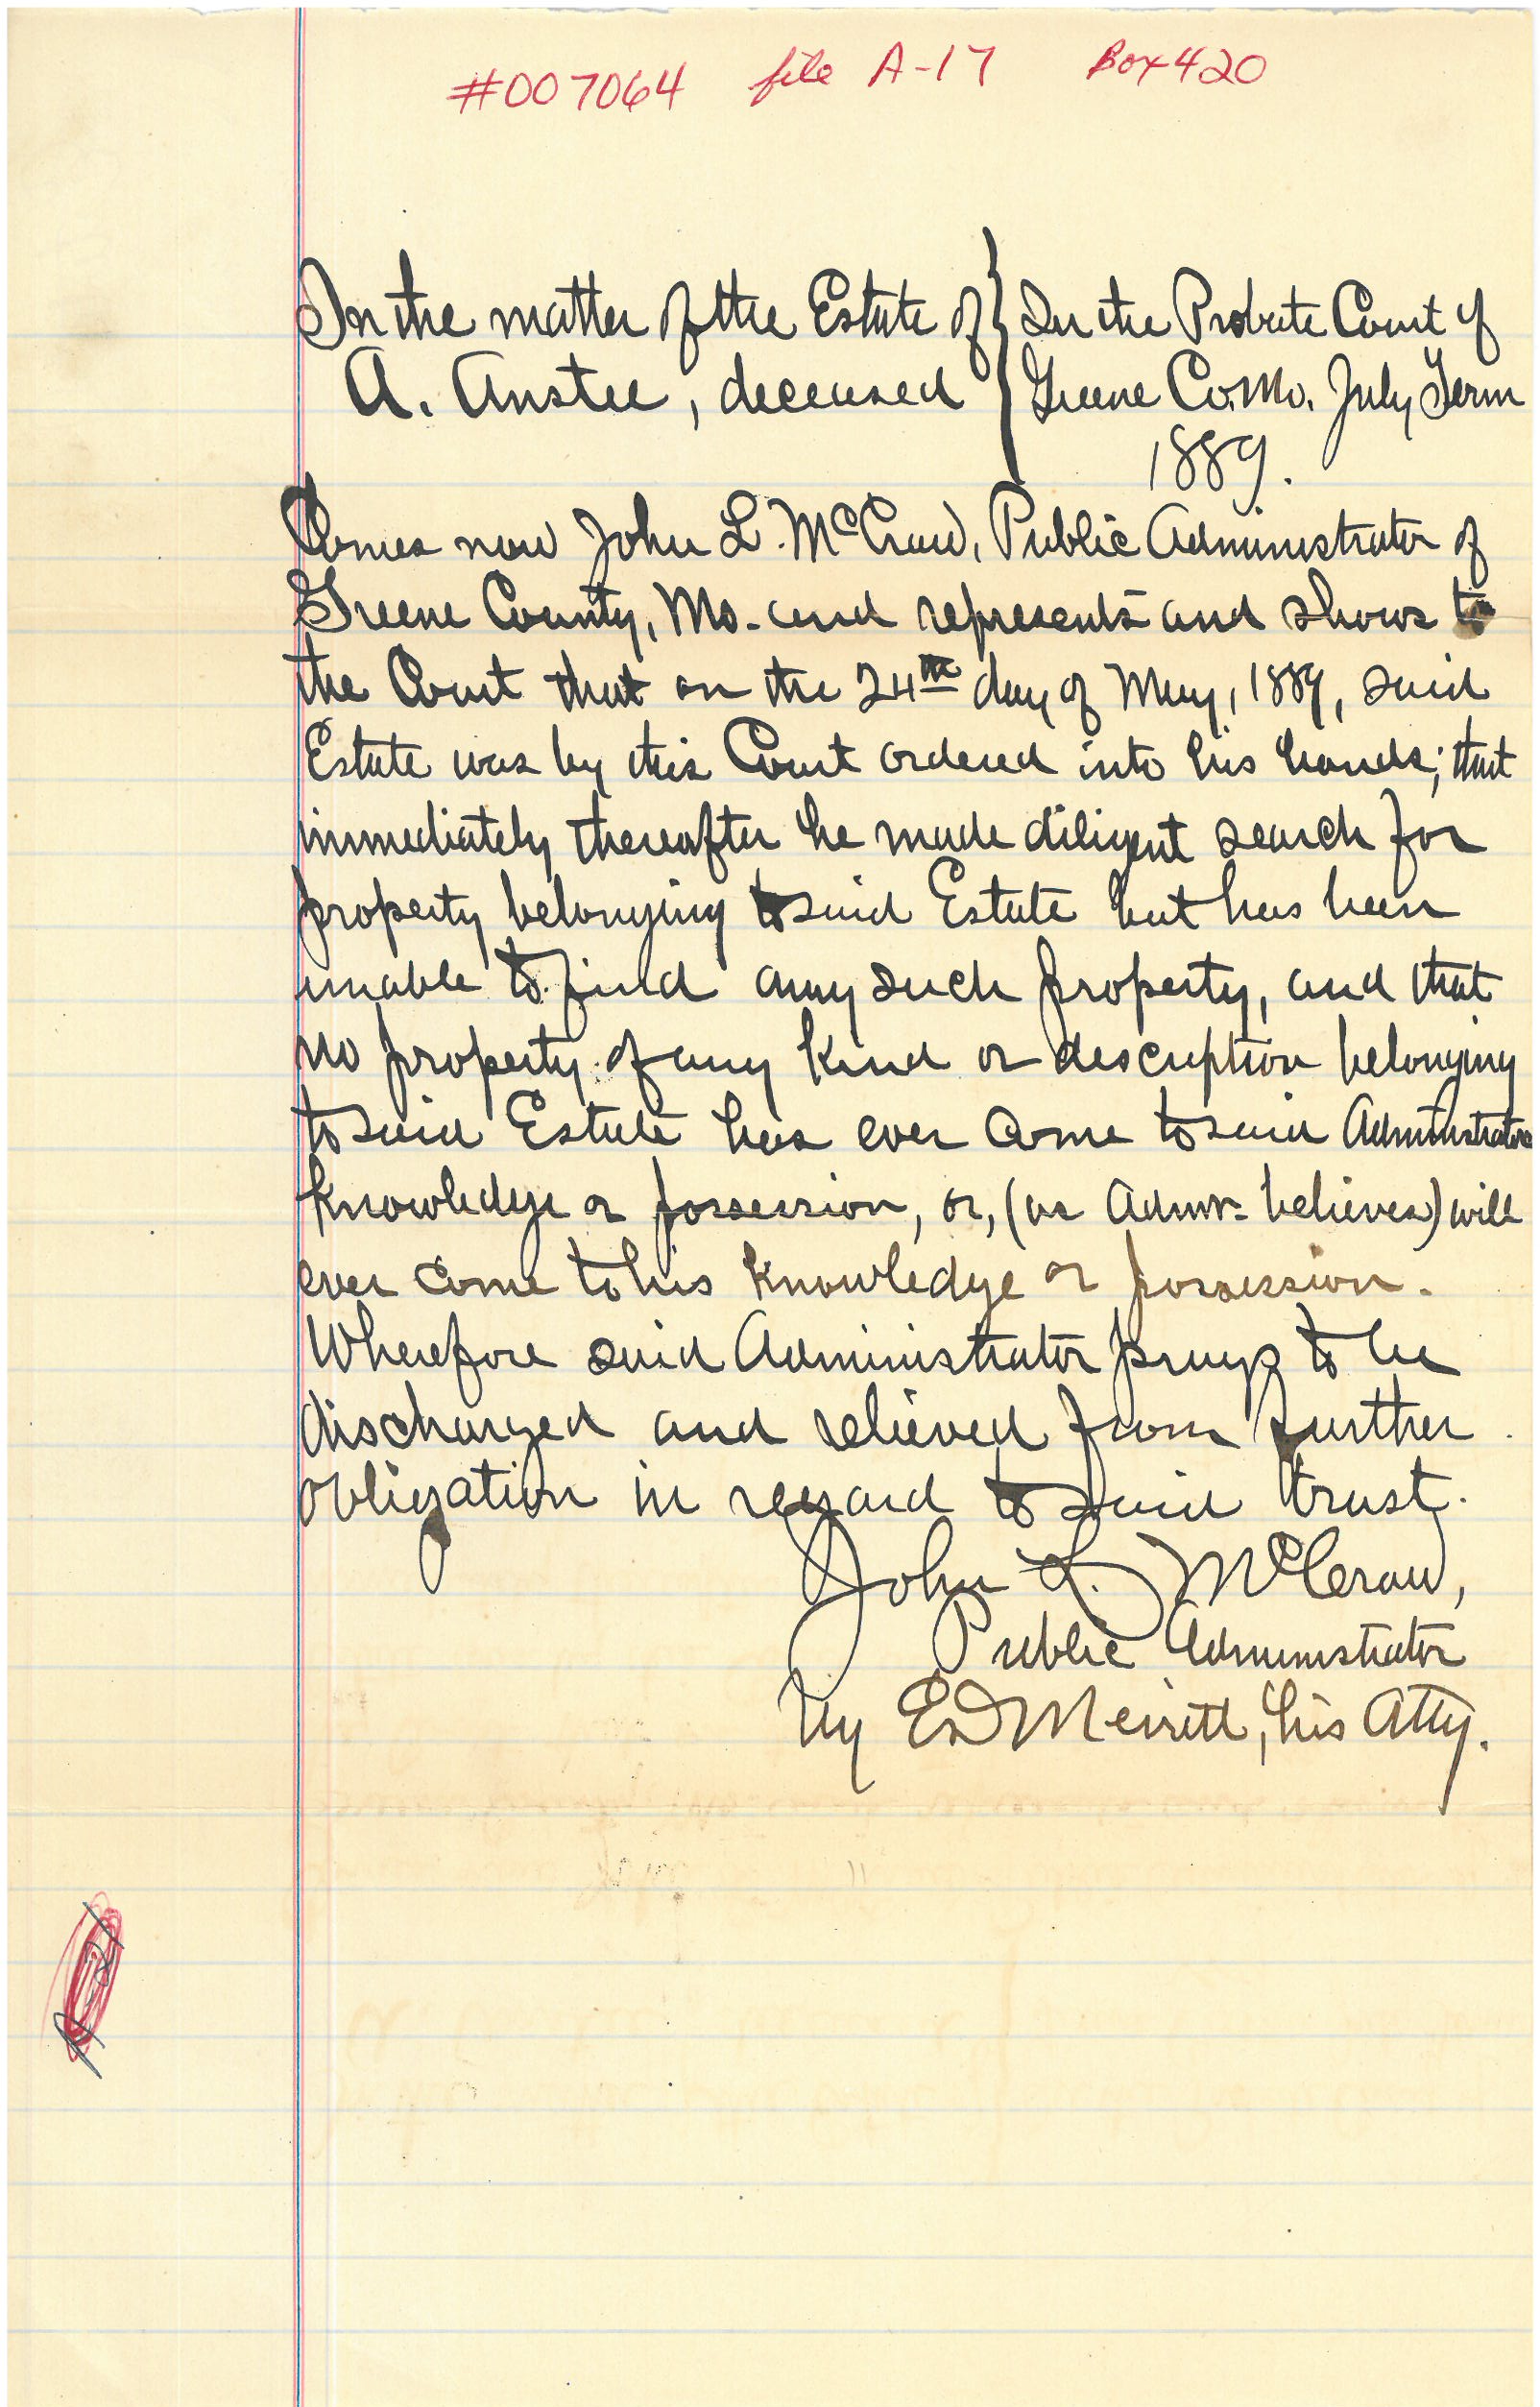 #007064 file A-17 Box 420
In the matter of the Estate of } In the Probate Court of
A. Anstee, deceased } Greene Co. Mo. July Term
1889.
Comes now John L. McCraw, Public Administrator of
Greene County, Mo. and represents and shows to
the Court that on the 24th day of May, 1889, said
Estate was by this Court ordered into his hands; that
immediately thereafter he made diligent search for
property belonging to said Estate but has been
unable to find any such property, and that
no property of any kind or description belonging
to said Estate has ever come to said Administrators
knowledge or possession, or, (as Admr. believes) will
ever come to his knowledge or possession.
Wherefore said Administrator prays to be
discharged and relieved from further
obligation in regard to said trust.
John L. McCraw,
Public Administrator
by E D Merritt, his Atty.